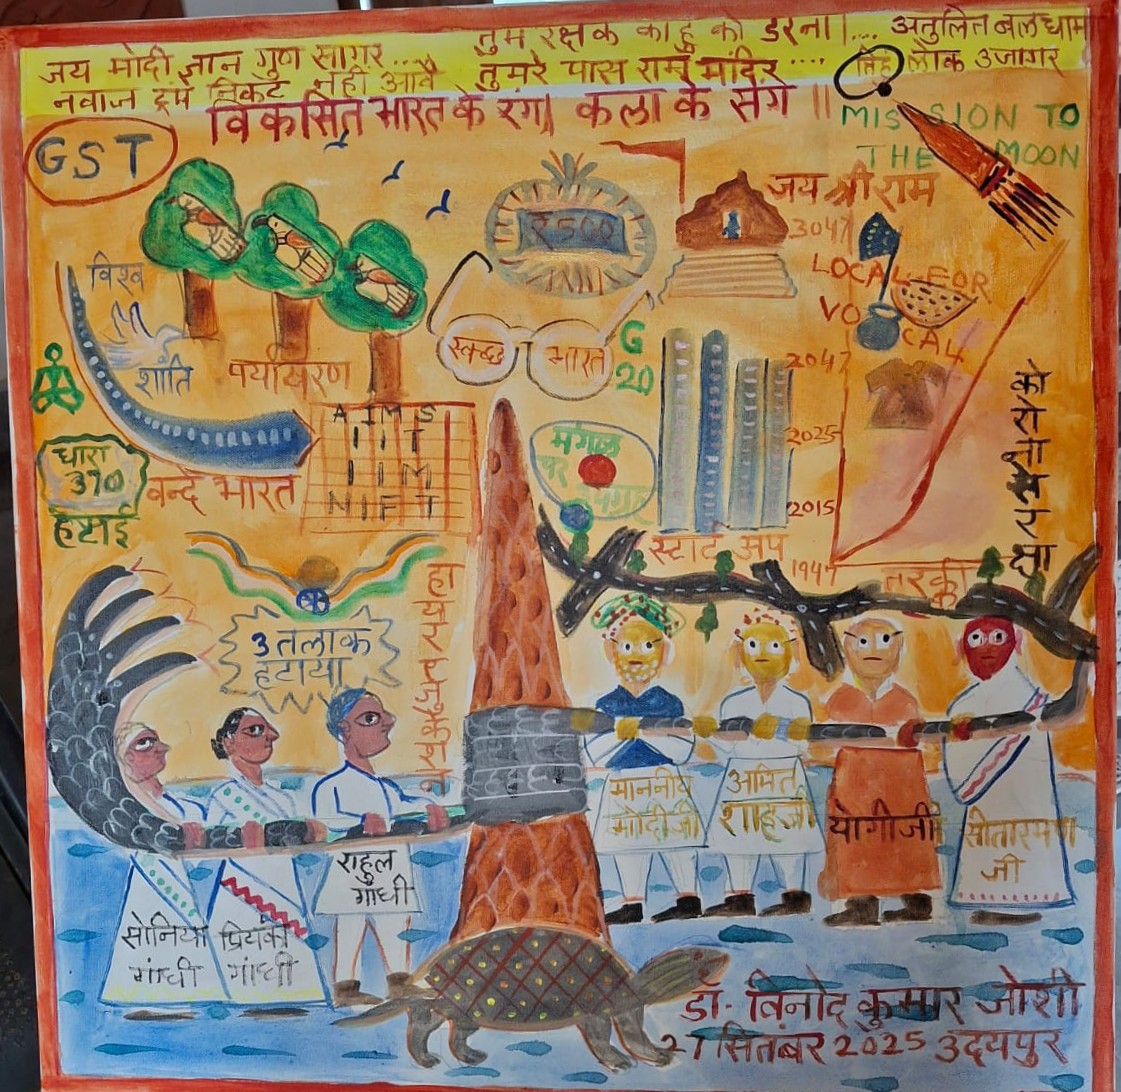 तुम रक्षक काहु को डरना।.... अतुलित बल धामा
जय मोदी ज्ञान गुण सागर.... तुमरे पास राम मंदिर .... तिहुं लोक उजागर
नवाज ट्रंप निकट नही आवै
विकसित भारत के रंग। कला के संग ॥
MISSION TO
THE MOON
GST
₹500
जय श्री राम
3047
LOCAL FOR
VOCAL
विश्व
शांति
पर्यावरण
स्वच्छ भारत
G
20
2047
2025
2015
1947
AIMS
IIT
IIM
NIFT
धारा
370
हटाई
वन्दे भारत
मंगल
पर
स्टार्ट अप
तरक्की
3 तलाक
हटाया
माननीय
मोदीजी
अमित
शाहजी
योगीजी
सीतारमण
जी
राहुल
गांधी
सोनिया
गांधी
प्रियंका
गांधी
डॉ. विनोद कुमार जोशी
27 सितंबर 2025 उदयपुर